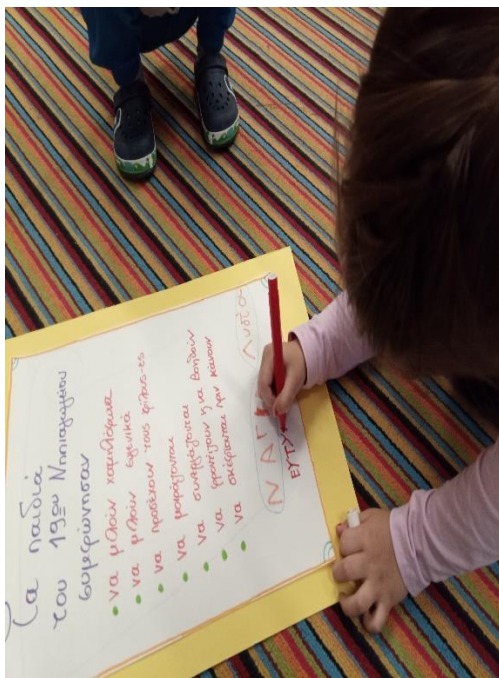 Τα παιδιά
του 19ου Νηπιαγωγείου
συμφώνησαν
• να μιλούν χαμηλόφωνα
• να μιλούν ευγενικά
• να προσέχουν τους φίλους-ες
• να μοιράζονται
• να συνεργάζονται
• να φροντίζουν η να βοηθούν
• να σκέφτονται πριν κάνουν
Λυδία
ΕΥΤΥ